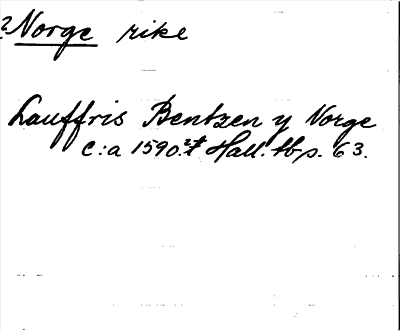 ? Norge rike
Lauffris Bentzen y Norge
c:a 1590. Hall. tb s. 63.